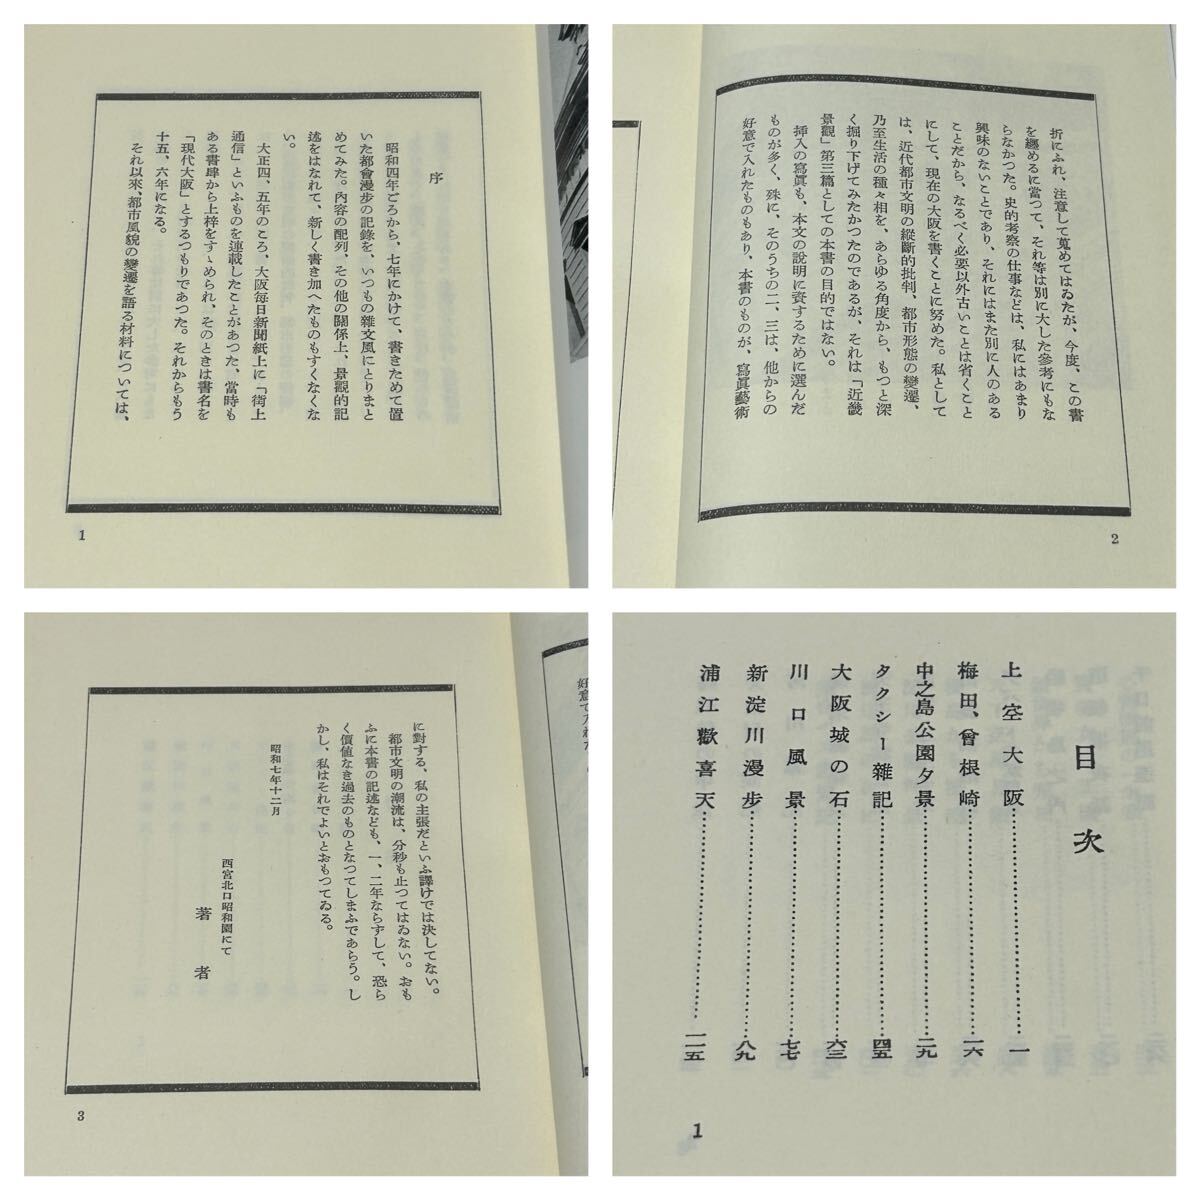 序
昭和四年ごろから、七年にかけて、書きためて置
いた都會漫步の記錄を、いつもの雜文風にとりまと
めてみた。內容の配列、その他の關係上、景觀的記
述をはなれて、新しく書き加へたものもすくなくな
い。
大正四、五年のころ、大阪每日新聞紙上に「街上
通信」といふものを連載したことがあつた、當時も
ある書肆から上梓をすゝめられ、そのときは書名を
「現代大阪」とするつもりであつた。それからもう
十五、六年になる。
それ以來、都市風貌の變遷を語る材料については、
1
折にふれ、注意して蒐めてはゐたが、今度、この書
を纏めるに當つて、それ等は別に大した參考にもな
らなかつた。史的考察の仕事などは、私にはあまり
興味のないことであり、それにはまた別に人のある
ことだから、なるべく必要以外古いことは省くこと
にして、現在の大阪を書くことに努めた。私として
は、近代都市文明の縱斷的批判、都市形態の變遷、
乃至生活の種々相を、あらゆる角度から、もつと深
く掘り下げてみたかつたのであるが、それは「近畿
景觀」第三篇としての本書の目的ではない。
挿入の寫眞も、本文の說明に資するために選んだ
ものが多く、殊に、そのうちの二、三は、他からの
好意で入れたものもあり、本書のものが、寫眞藝術
2
に對する、私の主張だといふ譯けでは決してない。
都市文明の潮流は、分秒も止つてはゐない。おも
ふに本書の記述なども、一、二年ならずして、恐ら
く價値なき過去のものとなつてしまふであらう。し
かし、私はそれでよいとおもつてゐる。
昭和七年十二月
西宮北口昭和園にて
著者
3
目次
上空大阪……一
梅田、曾根崎……一六
中之島公園夕景……二九
タクシー雜記……四五
大阪城の石……六三
川口風景……七七
新淀川漫步……八九
浦江歡喜天……一一五
1